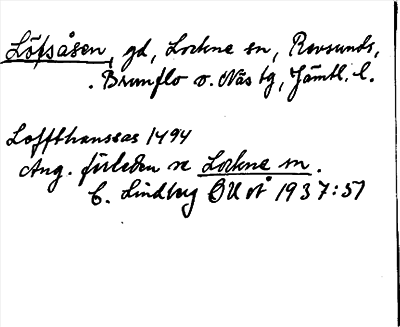 Löfsåsen, gd, Lockne sn, Revsunds,
Brunflo o. Näs tg, Jämtl. l.
Loffthanssas 1494
Ang. förleden se Lockne sn.
C. Lindberg OUÅ 1937:57